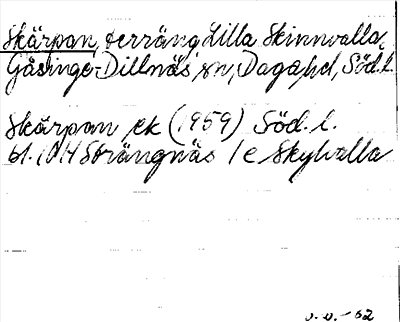 Skärpan, terräng Lilla Skinnvalla,
Gåsinge-Dillnäs sn, Daga hd, Söd. l.
Skärpan ek (1959) Söd. l.
bl. 10H Strängnäs 1e Skylvalla